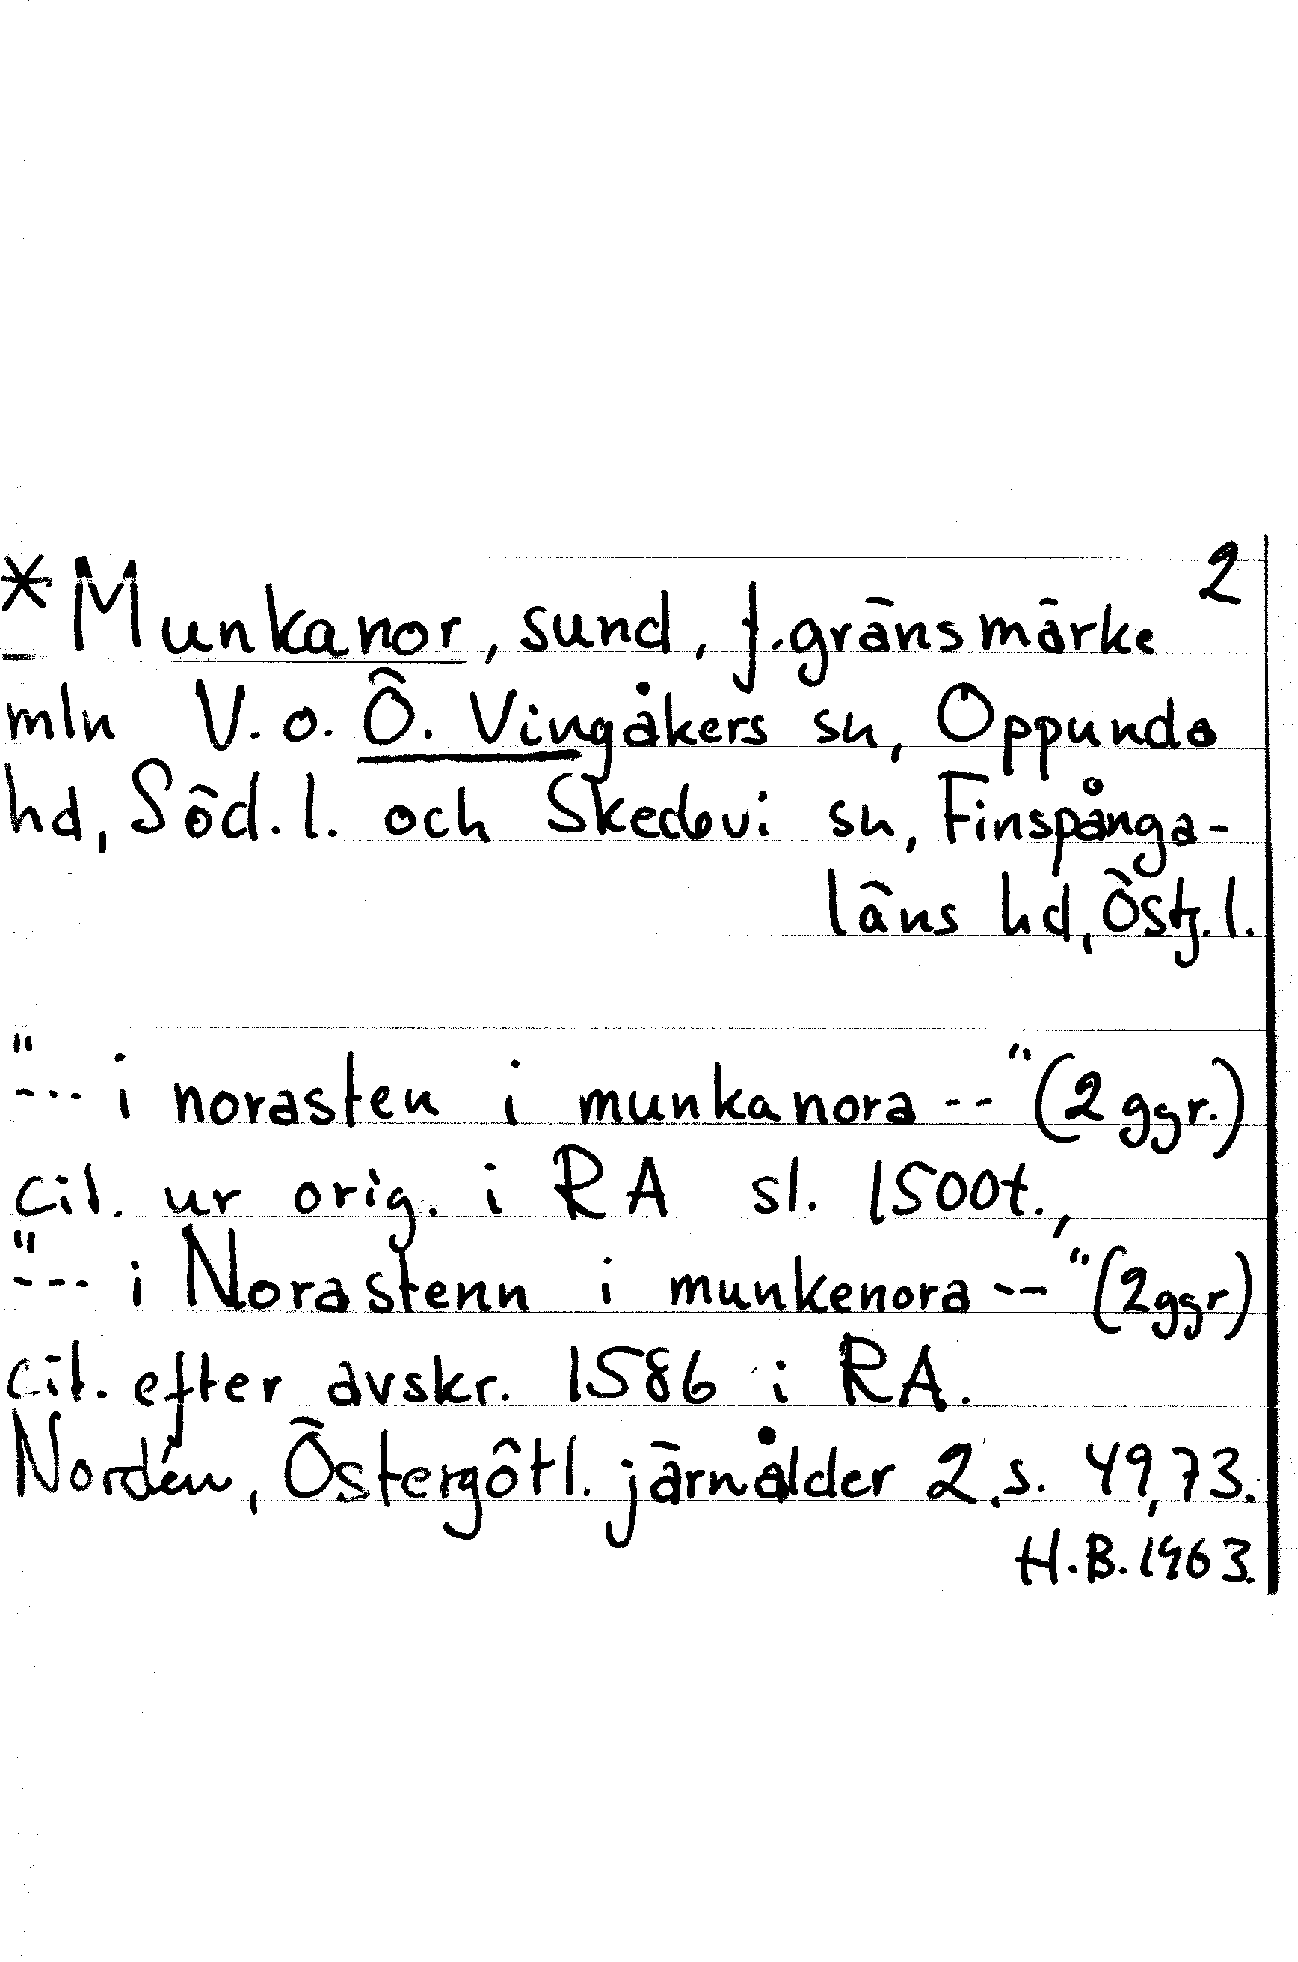 2
*Munkanor, sund, f. gränsmärke
mln V. o. Ö. Vingåkers sn, Oppunda
hd, Söd. l. och Skedevi sn, Finspånga-
läns hd, Östg. l.
"--- i norasten i munkanora --" (2 ggr.)
cit. ur orig. i RA sl. 1500t.,
"--- i Norastenn i munkenora --" (2 ggr)
cit. efter avskr. 1586 i RA.
Nordén, Östergötl. järnålder 2, s. 49, 73.
H.B. 1963.